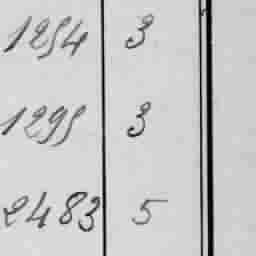 1254 3
1295 3
2483 5